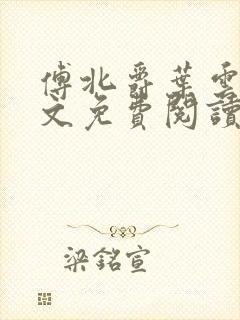 傅北爵葉雲
文免費閱讀
梁銘宣